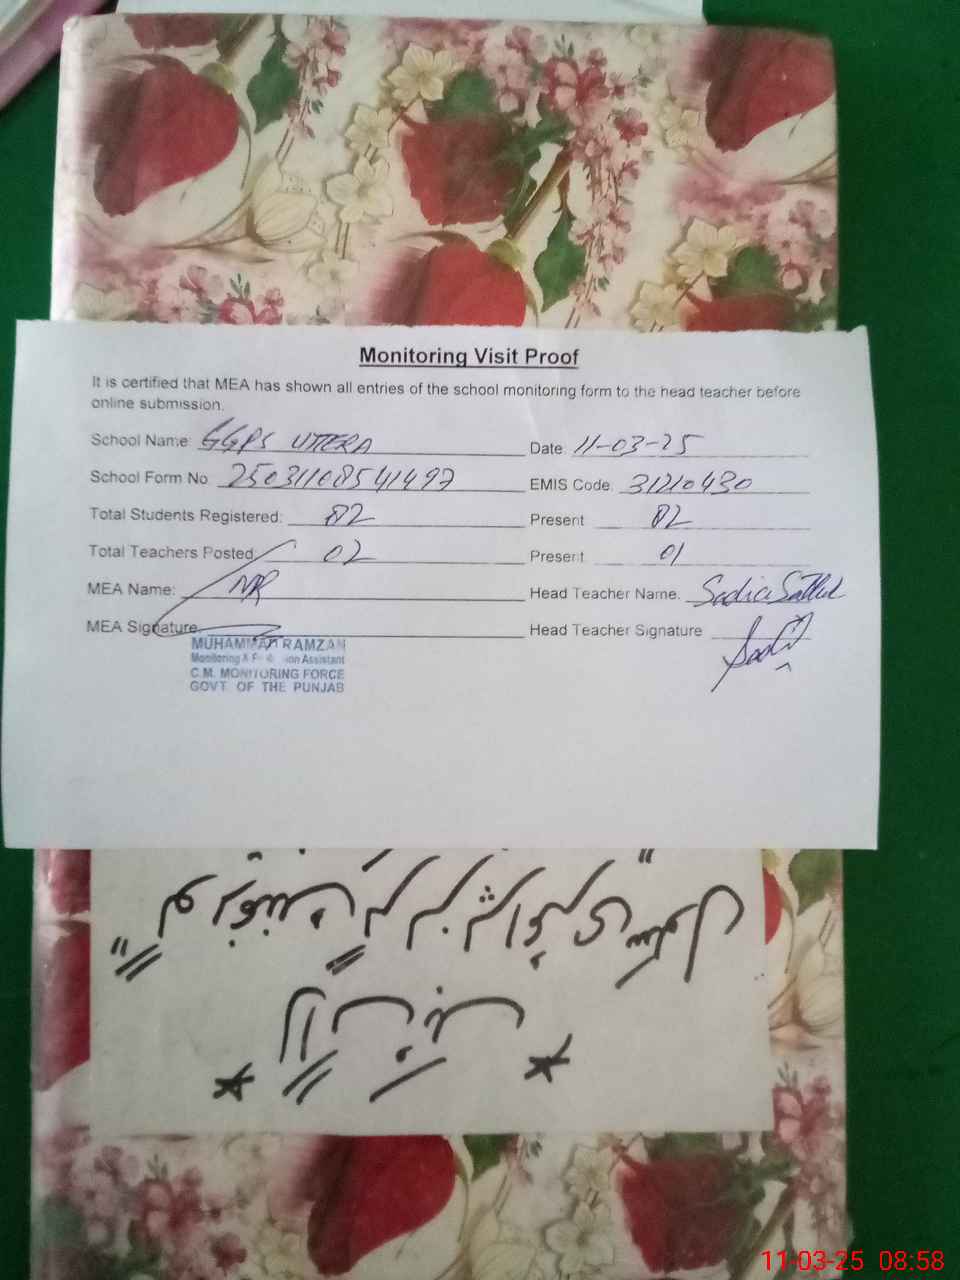 Monitoring Visit Proof
It is certified that MEA has shown all entries of the school monitoring form to the head teacher before
online submission.
School Name: GGPS UTTERA Date: 11-03-25
School Form No. 25031108541497 EMIS Code. 31210430
Total Students Registered: 82 Present 82
Total Teachers Posted 02 Present 01
MEA Name: MR Head Teacher Name. Sadia
MEA Signature Head Teacher Signature
MUHAMMAD RAMZAN
Monitoring & Assistant
C.M. MONITORING FORCE
GOVT. OF THE PUNJAB
11-03-25 08:58